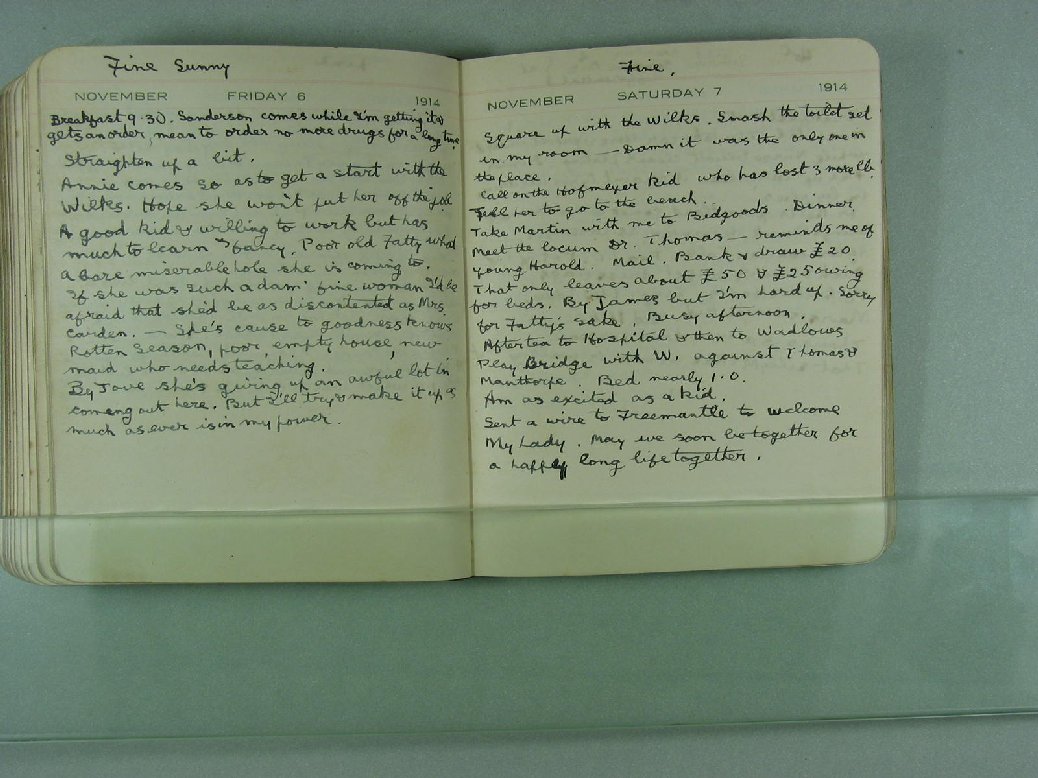 Fine Sunny
NOVEMBER FRIDAY 6 1914
Breakfast 9.30. Sanderson comes while I'm getting it &
gets an order, mean to order no more drugs for a long time
Straighten up a bit.
Annie comes so as to get a start with the
Wilks. Hope she won't put her off the job
A good kid & willing to work but has
much to learn I fancy. Poor old Fatty what
a bare miserable hole she is coming to.
If she was such a dam fine woman I'd be
afraid that she'd be as discontented as Mrs.
Carden. — She's cause to goodness knows
Rotten season, poor empty house, new
maid who needs teaching.
By Jove she's giving up an awful lot in
coming out here. But I'll try & make it up as
much as ever is in my power.
Fine.
NOVEMBER SATURDAY 7 1914
Square up with the Wilks. Smash the toilet set
in my room — Damn it was the only one in
the place.
Call on the Hofmeyer kid who has lost 3 more lb.
Tell her to go to the beach.
Take Martin with me to Bidgoods. Dinner
Meet the locum Dr. Thomas — reminds me of
young Harold. Mail. Bank & draw £20
That only leaves about £50 & £25 owing
for beds. By James but I'm hard up. Sorry
for Fatty's sake. Busy afternoon.
After tea to Hospital & then to Wadlows
Play Bridge with W. against Thomas &
Manthorpe. Bed nearly 1.0.
Am as excited as a kid.
Sent a wire to Freemantle to welcome
My Lady. May we soon be together for
a happy long life together.